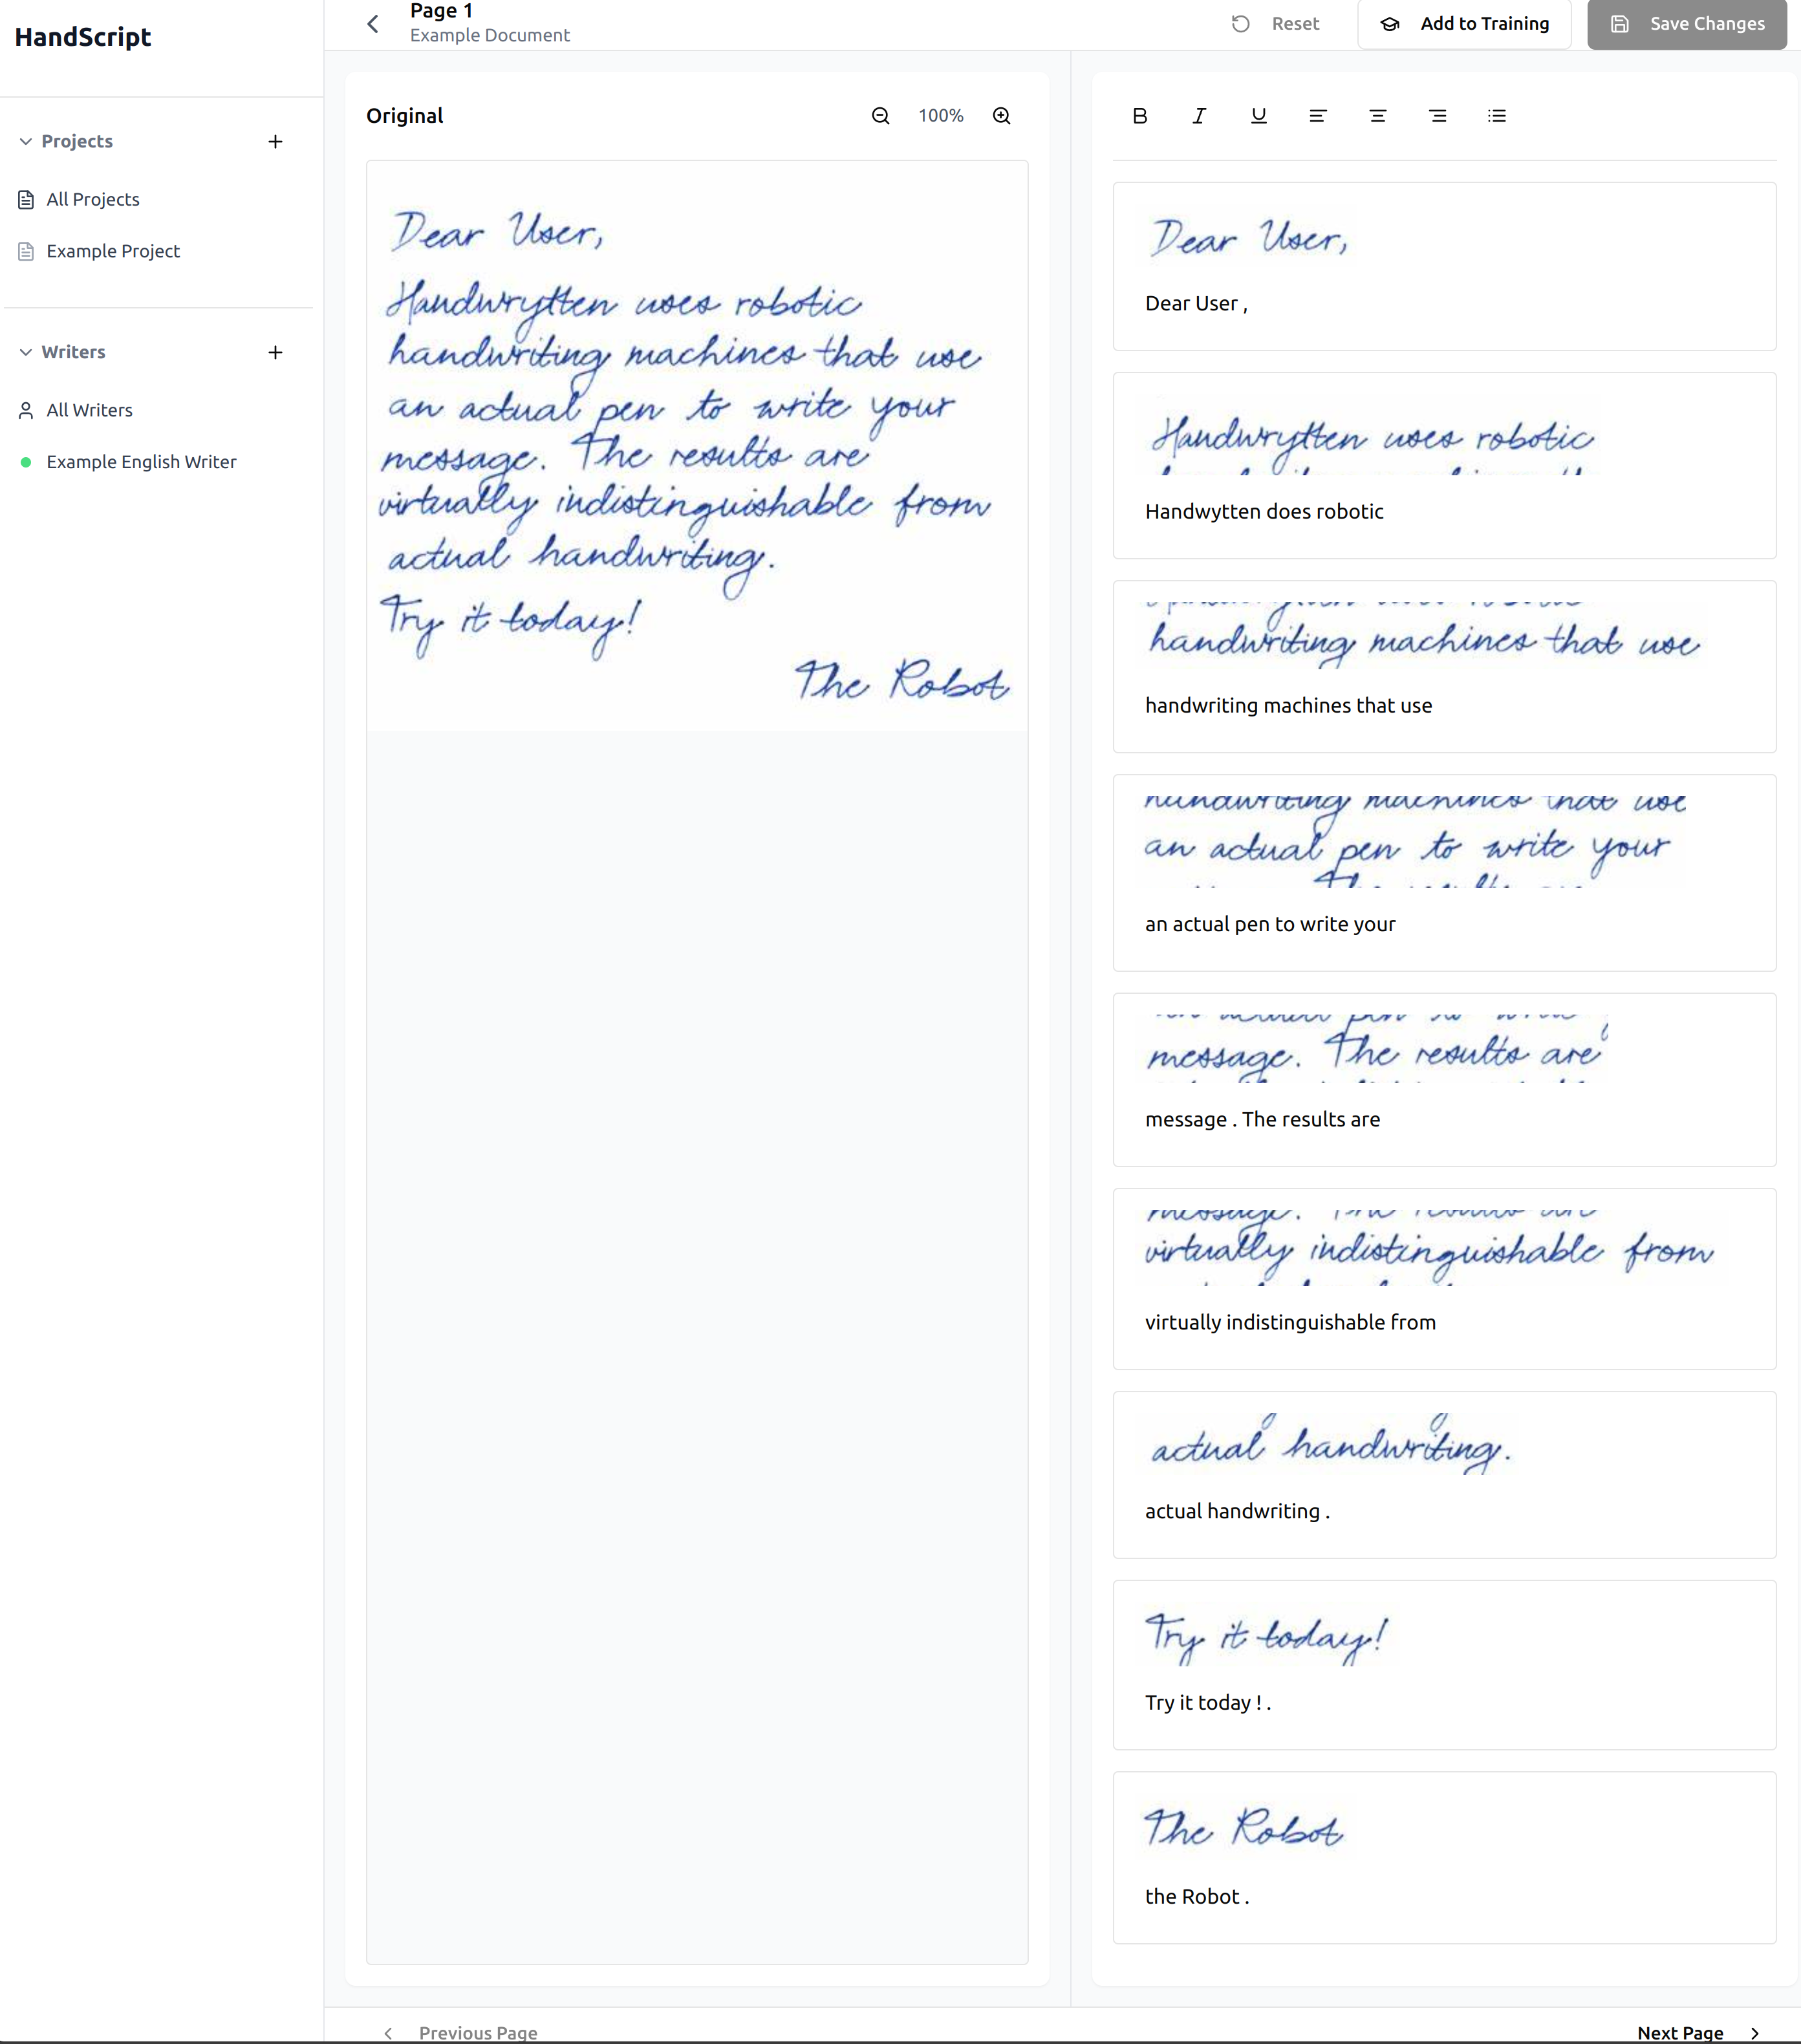 HandScript
Projects
All Projects
Example Project
Writers
All Writers
Example English Writer
Page 1
Example Document
Reset
Add to Training
Save Changes
Original
100%
Dear User,
Handwrytten uses robotic
handwriting machines that use
an actual pen to write your
message. The results are
virtually indistinguishable from
actual handwriting.
Try it today!
The Robot
B I U
Dear User,
Dear User ,
Handwrytten uses robotic
Handwytten does robotic
handwriting machines that use
handwriting machines that use
handwriting machines that use
an actual pen to write your
an actual pen to write your
message. The results are
message . The results are
virtually indistinguishable from
virtually indistinguishable from
actual handwriting.
actual handwriting .
Try it today!
Try it today ! .
The Robot
the Robot .
Previous Page
Next Page